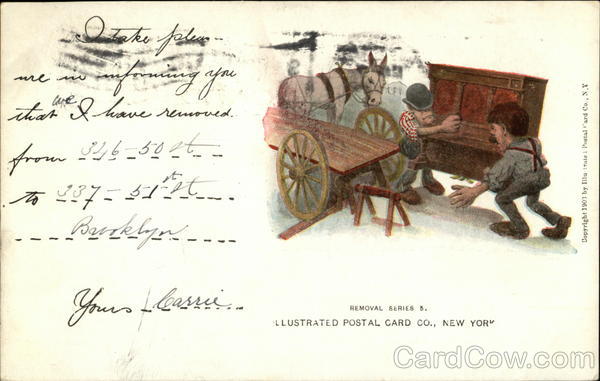 I take pleas-
ure in informing you
that we I have removed.
from 346-50 st
to 337-51st st
Brooklyn
Yours Carrie
REMOVAL SERIES 5.
ILLUSTRATED POSTAL CARD CO., NEW YORK
Copyright 1903 by Illustrated Postal Card Co., N.Y
CardCow.com